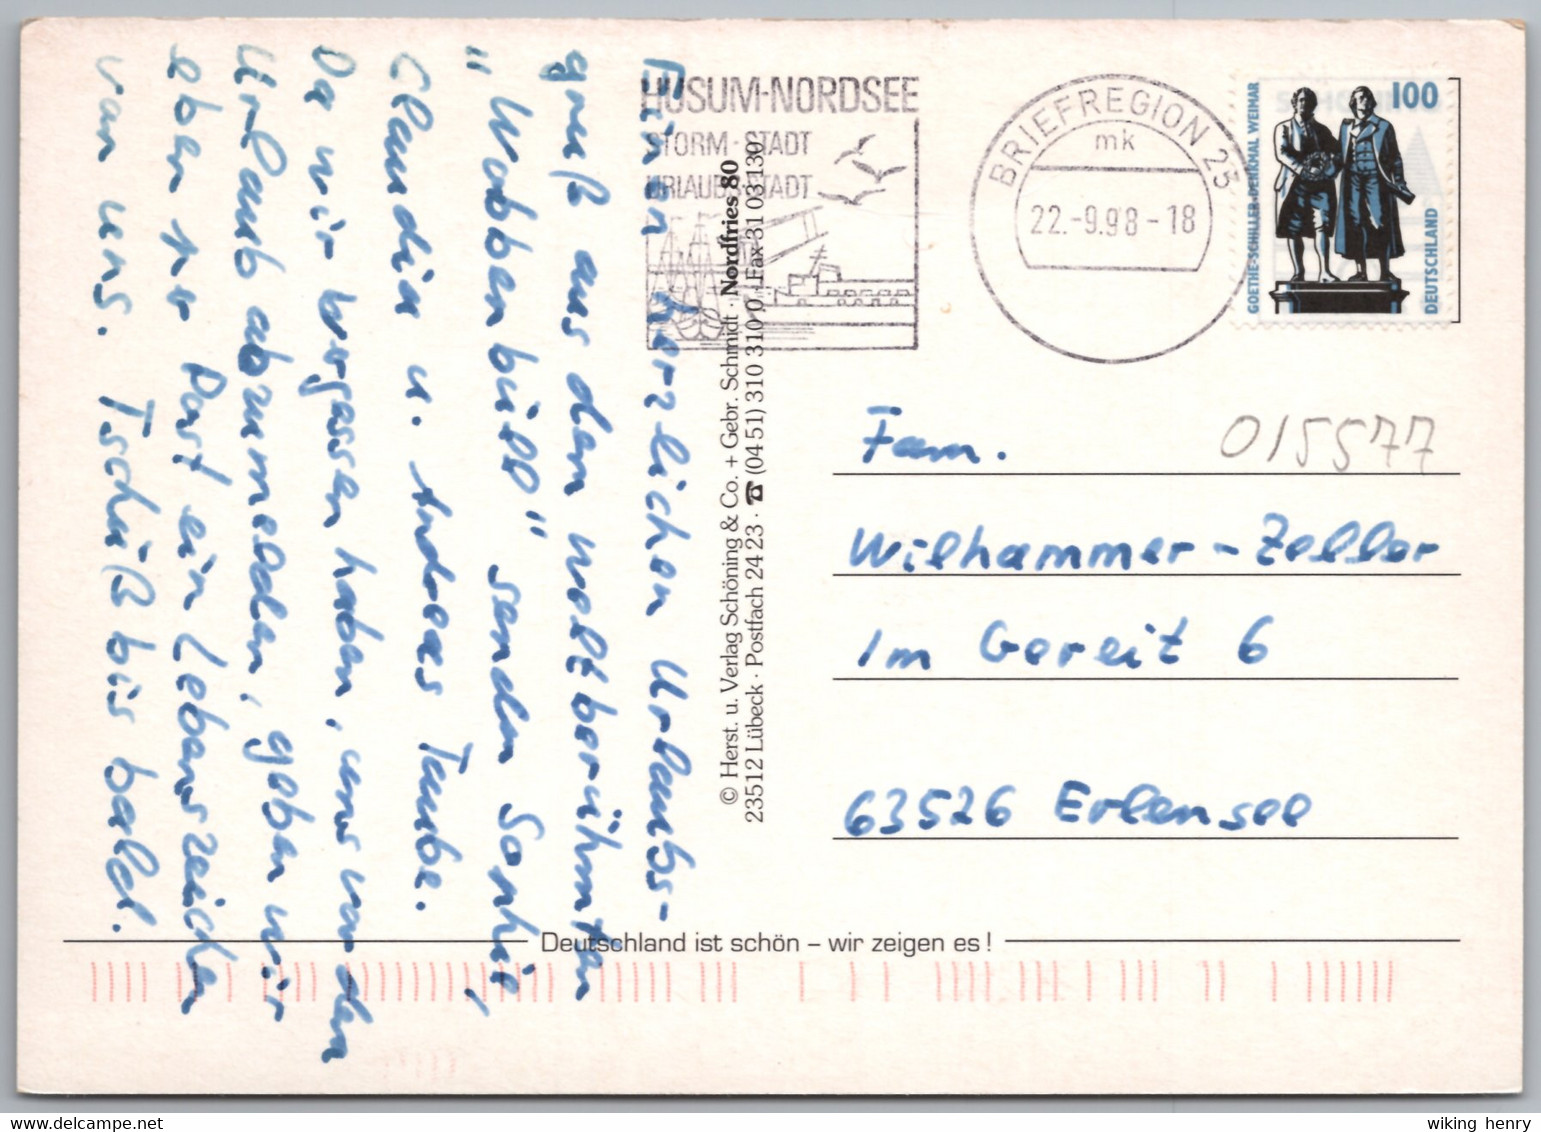 HUSUM-NORDSEE
STORM-STADT
URLAUBS-STADT
BRIEFREGION 25
mk
22.-9.98-18
100
GOETHE-SCHILLER-DENKMAL WEIMAR
DEUTSCHLAND
Einen herzlichen Urlaubs-
gruß aus dem weltberühmten
"Wobbenbüll" senden Sophie,
Claudia u. Andreas Taube.
Da wir vergessen haben, uns von den
Urlaub abzumelden, geben wir
eben per Post ein Lebenszeichen
von uns. Tschüß bis bald.
© Herst. u. Verlag Schöning & Co. + Gebr. Schmidt · Nordfries 80
23512 Lübeck · Postfach 24 23 · ☎ (04 51) 310 310 / Fax 31 03 130
015577
Fam.
Wilhammer-Zeller
Im Gereit 6
63526 Erlensee
Deutschland ist schön – wir zeigen es!
wiking henry